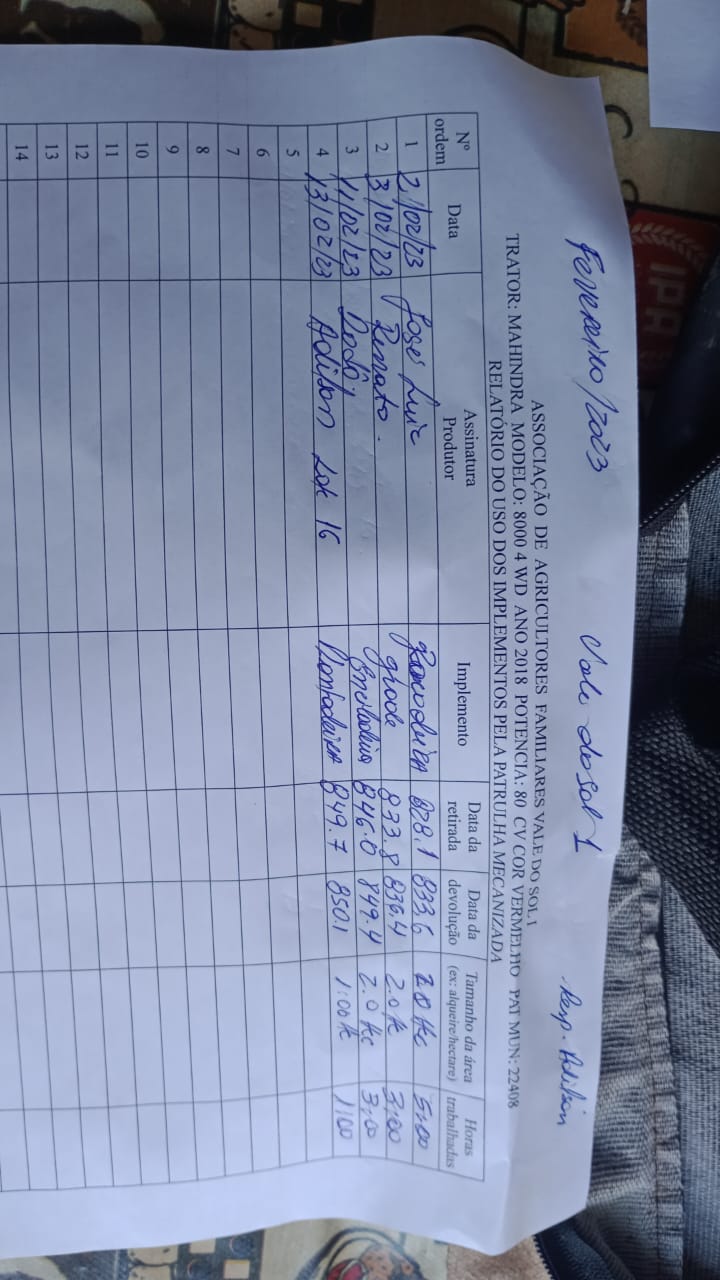 Fevereiro/2023 Vale do Sol 1 Resp. Adilson
ASSOCIAÇÃO DE AGRICULTORES FAMILIARES VALE DO SOL I
TRATOR: MAHINDRA MODELO: 8000 4 WD ANO 2018 POTENCIA: 80 CV COR VERMELHO PAT MUN: 22408
RELATÓRIO DO USO DOS IMPLEMENTOS PELA PATRULHA MECANIZADA
Nº ordem Data Assinatura Produtor Implemento Data da retirada Data da devolução Tamanho da área (ex: alqueire/hectare) Horas trabalhadas
1 2/02/23 José Luiz 828.1 833,6 2.0 Hc 5,00
2 3/02/23 Renato. grade 833.8 836.4 2.0 3,00
3 11/02/23 846.0 849.4 2.0 Hc 3,00
4 13/02/23 Adilson Lote 16 849.7 850.1 1:00 1,00
5
6
7
8
9
10
11
12
13
14
IPA